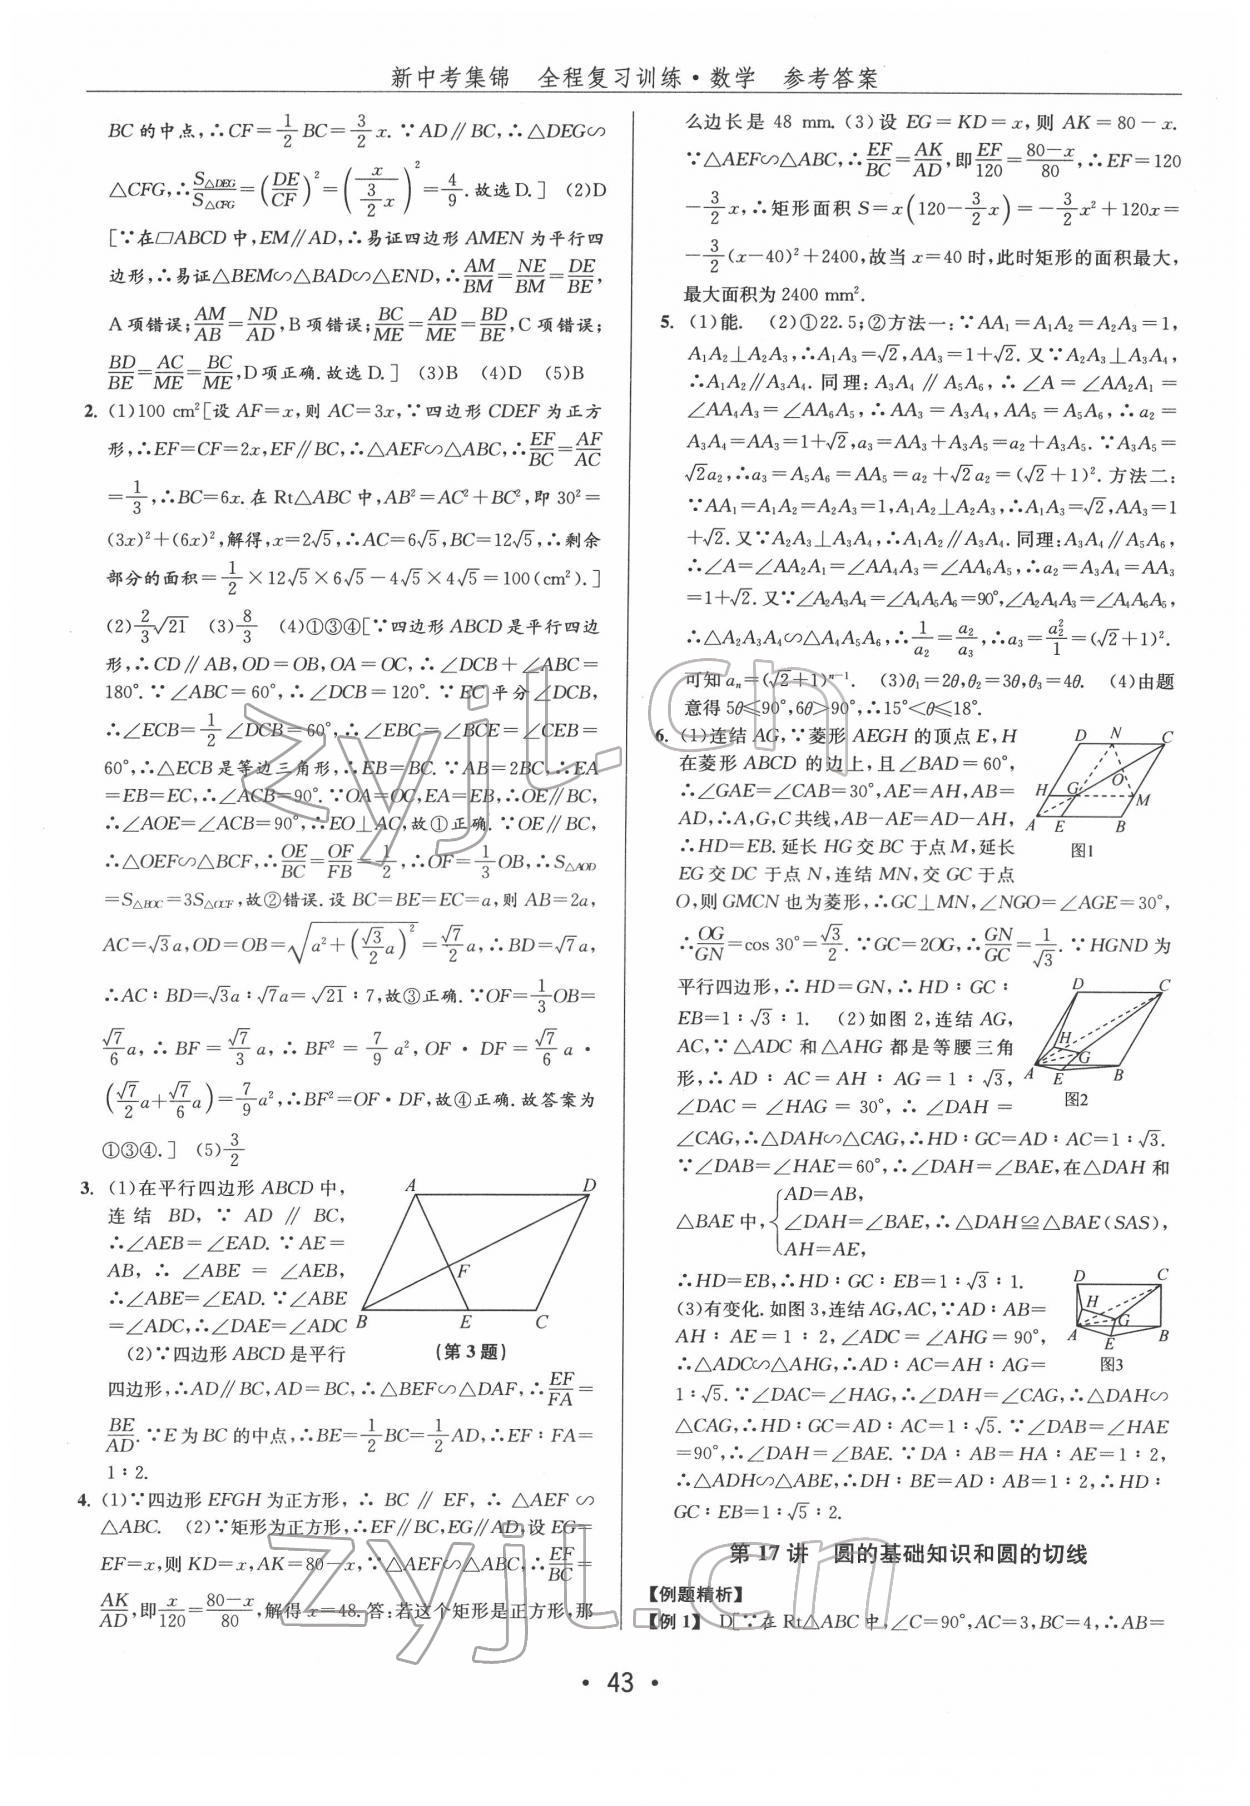 新中考集锦 全程复习训练·数学 参考答案
BC的中点,∴CF=1/2BC=3/2x.∵AD∥BC,∴△DEG∽
△CFG,∴S△DEG/S△CFG=(DE/CF)²=(x/(3/2x))²=4/9.故选D.] (2)D
[∵在▱ABCD中,EM∥AD,∴易证四边形AMEN为平行四
边形,∴易证△BEM∽△BAD∽△END,∴AM/BM=NE/BM=DE/BE,
A项错误;AM/AB=ND/AD,B项错误;BC/ME=AD/ME=BD/BE,C项错误;
BD/BE=AC/ME=BC/ME,D项正确.故选D.] (3)B (4)D (5)B
2. (1)100 cm²[设AF=x,则AC=3x,∵四边形CDEF为正方
形,∴EF=CF=2x,EF∥BC,∴△AEF∽△ABC,∴EF/BC=AF/AC
=1/3,∴BC=6x.在Rt△ABC中,AB²=AC²+BC²,即30²=
(3x)²+(6x)²,解得,x=2√5,∴AC=6√5,BC=12√5,∴剩余
部分的面积=1/2×12√5×6√5-4√5×4√5=100(cm²).]
(2)2/3√21 (3)8/3 (4)①③④[∵四边形ABCD是平行四边
形,∴CD∥AB,OD=OB,OA=OC,∴∠DCB+∠ABC=
180°.∵∠ABC=60°,∴∠DCB=120°.∵EC平分∠DCB,
∴∠ECB=1/2∠DCB=60°,∴∠EBC=∠BCE=∠CEB=
60°,∴△ECB是等边三角形,∴EB=BC.∵AB=2BC,∴EA
=EB=EC,∴∠ACB=90°.∵OA=OC,EA=EB,∴OE∥BC,
∴∠AOE=∠ACB=90°,∴EO⊥AC,故①正确.∵OE∥BC,
∴△OEF∽△BCF,∴OE/BC=OF/FB=1/2,∴OF=1/3OB,∴S△AOD
=S△BOC=3S△OCF,故②错误.设BC=BE=EC=a,则AB=2a,
AC=√3a,OD=OB=√(a²+(√3/2a)²)=√7/2a,∴BD=√7a,
∴AC∶BD=√3a∶√7a=√21∶7,故③正确.∵OF=1/3OB=
√7/6a,∴BF=√7/3a,∴BF²=7/9a²,OF·DF=√7/6a·
(√7/2a+√7/6a)=7/9a²,∴BF²=OF·DF,故④正确.故答案为
①③④.] (5)3/2
3. (1)在平行四边形ABCD中,
连结BD,∵AD∥BC,
∴∠AEB=∠EAD.∵AE=
AB,∴∠ABE=∠AEB,
∴∠ABE=∠EAD.∵∠ABE
=∠ADC,∴∠DAE=∠ADC
A D F B E C
(第3题)
(2)∵四边形ABCD是平行
四边形,∴AD∥BC,AD=BC,∴△BEF∽△DAF,∴EF/FA=
BE/AD.∵E为BC的中点,∴BE=1/2BC=1/2AD,∴EF∶FA=
1∶2.
4. (1)∵四边形EFGH为正方形,∴BC∥EF,∴△AEF∽
△ABC. (2)∵矩形为正方形,∴EF∥BC,EG∥AD,设EG=
EF=x,则KD=x,AK=80-x,∵△AEF∽△ABC,∴EF/BC=
AK/AD,即x/120=(80-x)/80,解得x=48.答:若这个矩形是正方形,那
么边长是48 mm.(3)设EG=KD=x,则AK=80-x.
∵△AEF∽△ABC,∴EF/BC=AK/AD,即EF/120=(80-x)/80,∴EF=120
-3/2x,∴矩形面积S=x(120-3/2x)=-3/2x²+120x=
-3/2(x-40)²+2400,故当x=40时,此时矩形的面积最大,
最大面积为2400 mm².
5. (1)能. (2)①22.5;②方法一:∵AA₁=A₁A₂=A₂A₃=1,
A₁A₂⊥A₂A₃,∴A₁A₃=√2,AA₃=1+√2.又∵A₂A₃⊥A₃A₄,
∴A₁A₂∥A₃A₄.同理:A₃A₄∥A₅A₆,∴∠A=∠AA₂A₁=
∠AA₄A₃=∠AA₆A₅,∴AA₃=A₃A₄,AA₅=A₅A₆,∴a₂=
A₃A₄=AA₃=1+√2,a₃=AA₃+A₃A₅=a₂+A₃A₅.∵A₃A₅=
√2a₂,∴a₃=A₅A₆=AA₅=a₂+√2a₂=(√2+1)².方法二:
∵AA₁=A₁A₂=A₂A₃=1,A₁A₂⊥A₂A₃,∴A₁A₃=√2,AA₃=1
+√2.又∵A₂A₃⊥A₃A₄,∴A₁A₂∥A₃A₄.同理:A₃A₄∥A₅A₆,
∴∠A=∠AA₂A₁=∠AA₄A₃=∠AA₆A₅,∴a₂=A₃A₄=AA₃
=1+√2.又∵∠A₂A₃A₄=∠A₄A₅A₆=90°,∠A₂A₄A₃=∠A₄A₆A₅,
∴△A₂A₃A₄∽△A₄A₅A₆,∴1/a₂=a₂/a₃,∴a₃=a₂²/1=(√2+1)².
可知aₙ=(√2+1)ⁿ⁻¹. (3)θ₁=2θ,θ₂=3θ,θ₃=4θ. (4)由题
意得5θ≤90°,6θ>90°,∴15°<θ≤18°.
6. (1)连结AG,∵菱形AEGH的顶点E,H
在菱形ABCD的边上,且∠BAD=60°,
∴∠GAE=∠CAB=30°,AE=AH,AB=
AD,∴A,G,C共线,AB-AE=AD-AH,
∴HD=EB.延长HG交BC于点M,延长
EG交DC于点N,连结MN,交GC于点
D N C O H G M A E B
图1
O,则GMCN也为菱形,∴GC⊥MN,∠NGO=∠AGE=30°,
∴OG/GN=cos 30°=√3/2.∵GC=2OG,∴GN/GC=1/√3.∵HGND为
平行四边形,∴HD=GN,∴HD∶GC∶
EB=1∶√3∶1. (2)如图2,连结AG,
AC,∵△ADC和△AHG都是等腰三角
形,∴AD∶AC=AH∶AG=1∶√3,
∠DAC=∠HAG=30°,∴∠DAH=
D C H G A E B
图2
∠CAG,∴△DAH∽△CAG,∴HD∶GC=AD∶AC=1∶√3.
∵∠DAB=∠HAE=60°,∴∠DAH=∠BAE,在△DAH和
△BAE中,{AD=AB,
∠DAH=∠BAE,∴△DAH≌△BAE(SAS),
AH=AE,
∴HD=EB,∴HD∶GC∶EB=1∶√3∶1.
(3)有变化.如图3,连结AG,AC,∵AD∶AB=
AH∶AE=1∶2,∠ADC=∠AHG=90°,
∴△ADC∽△AHG,∴AD∶AC=AH∶AG=
D C H G A E B
图3
1∶√5.∵∠DAC=∠HAG,∴∠DAH=∠CAG,∴△DAH∽
△CAG,∴HD∶GC=AD∶AC=1∶√5.∵∠DAB=∠HAE
=90°,∴∠DAH=∠BAE.∵DA∶AB=HA∶AE=1∶2,
∴△ADH∽△ABE,∴DH∶BE=AD∶AB=1∶2,∴HD∶
GC∶EB=1∶√5∶2.
第17讲 圆的基础知识和圆的切线
【例题精析】
【例1】 D[∵在Rt△ABC中,∠C=90°,AC=3,BC=4,∴AB=
· 43 ·
zyjl.cn
zyjl.cn